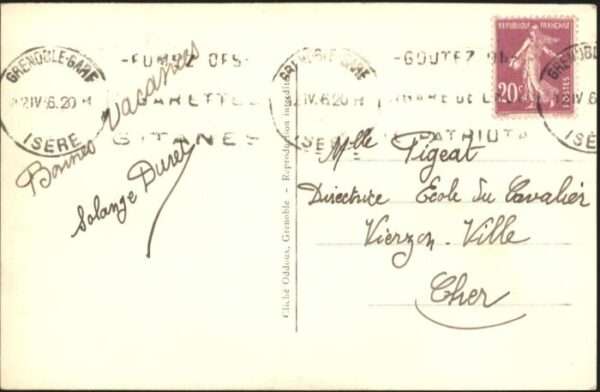 GRENOBLE-GARE
20H
ISÈRE
-FUMEZ DES-
GITANES
GRENOBLE-GARE
20H
ISÈRE
-GOUTEZ
REPUBLIQUE FRANÇAISE
20c
POSTES
Bonnes Vacances
Solange Duret
Cliché Oddoux, Grenoble - Reproduction interdite
Mlle Pigeat
Directrice Ecole du Cavalier
Vierzon-Ville
Cher